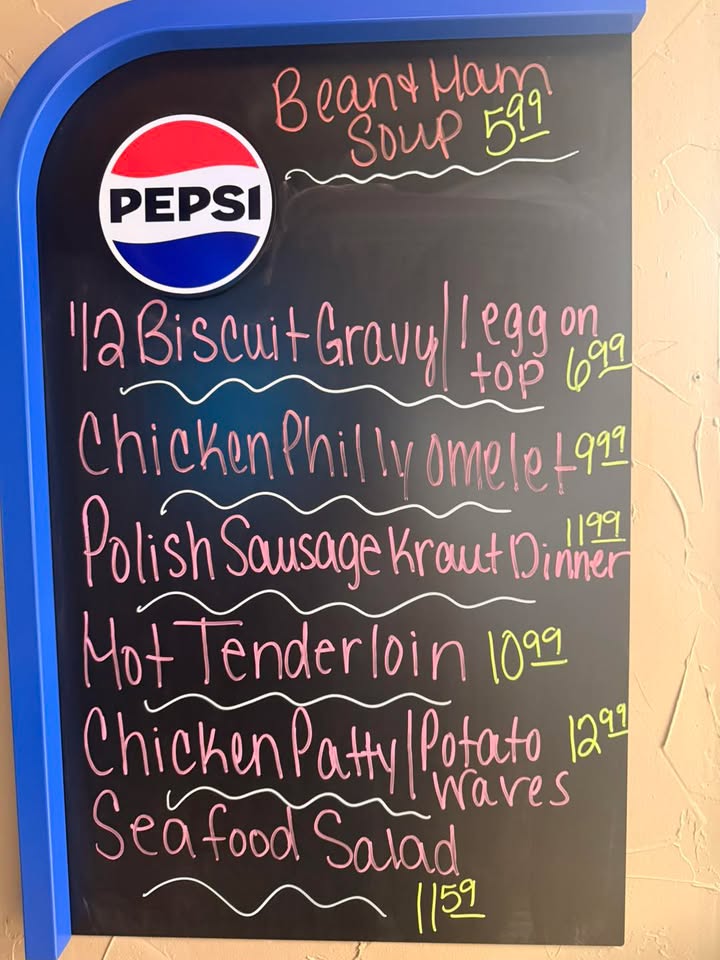 Bean & Ham
Soup 5.99
PEPSI
1/2 Biscuit Gravy / 1 egg on
top 6.99
Chicken Philly omelet 9.99
11.99
Polish Sausage Kraut Dinner
Hot Tenderloin 10.99
Chicken Patty / Potato 12.99
Waves
Seafood Salad
11.59